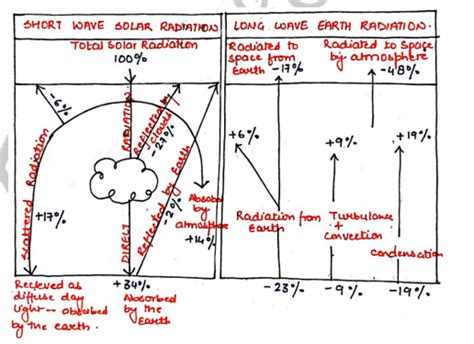 SHORT WAVE SOLAR RADIATION
LONG WAVE EARTH RADIATION.
Total Solar Radiation
100%
Radiated to
space from
Earth -17%
Radiated to Space
by atmosphere
-48%
-6%
RADIATION
Reflected by
clouds
-27%
Scattered Radiation
+17%
DIRECT
Reflected by Earth
-2%
Absorbed
by
atmosphere
+14%
+6%
+9%
+19%
Radiation from
Earth
Turbulance
+
Convection
condensation
Recieved as
diffuse day
light -- absorbed
by the earth.
+34%
Absorbed
by the
Earth
-23%
-9%
-19%